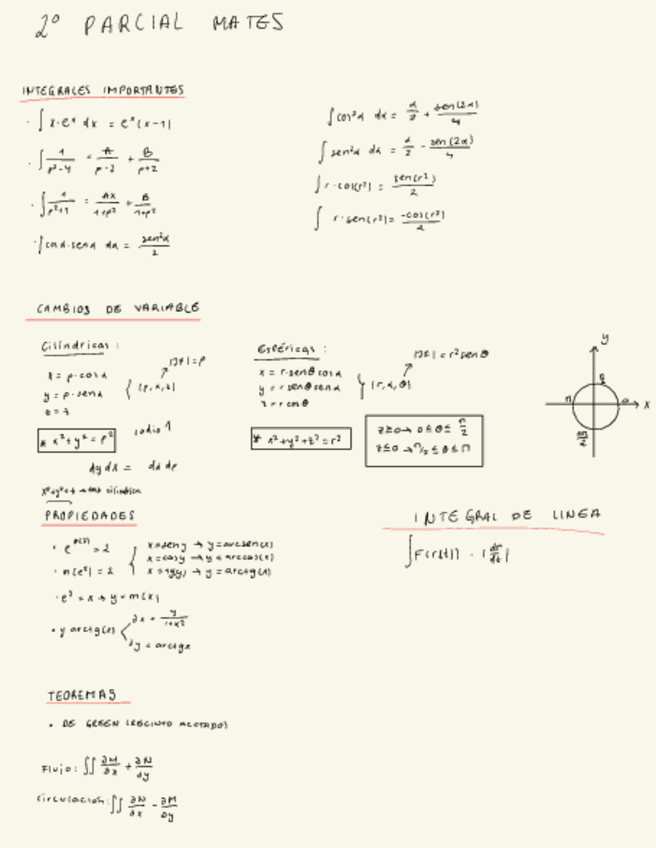 2º PARCIAL MATES
INTEGRALES IMPORTANTES
· ∫ x·eˣ dx = eˣ(x-1)
· ∫ 1/(p²-4) = A/(p-2) + B/(p+2)
· ∫ 1/(p²+1) = Ax/(1+p²) + B/(1+p²)
· ∫ cosα·senα dα = sen²α/2
∫ cos²α dα = α/2 + sen(2α)/4
∫ sen²α dα = α/2 - sen(2α)/4
∫ r·cos(r²) = sen(r²)/2
∫ r·sen(r²) = -cos(r²)/2
CAMBIOS DE VARIABLE
Cilíndricas:
x = ρ·cosα
y = ρ·senα
z = z
(ρ,α,z)
|J| = ρ
* x²+y² = ρ²
radio 1
dy dx = dα dρ
PROPIEDADES
Esféricas:
|J| = r² senθ
x = r·senθ cosα
y = r senθ senα
z = r cosθ
(r, α, θ)
* x²+y²+z² = r²
z≥0 → 0≤θ≤ π/2
z≤0 → π/2 ≤ θ ≤ π
y
x
π
0
INTEGRAL DE LINEA
∫ F(r(t)) · |dr/dt|
x = sen y → y = arcsen(x)
x = cos y → y = arccos(x)
x = tg(y) → y = arctg(x)
· y arctg(x)
∂x = y/(1+x²)
∂y = arctgx
TEOREMAS
· DE GREEN (RECINTO ACOTADO)
Flujo: ∬ ∂M/∂x + ∂N/∂y
Circulación: ∬ ∂N/∂x - ∂M/∂y